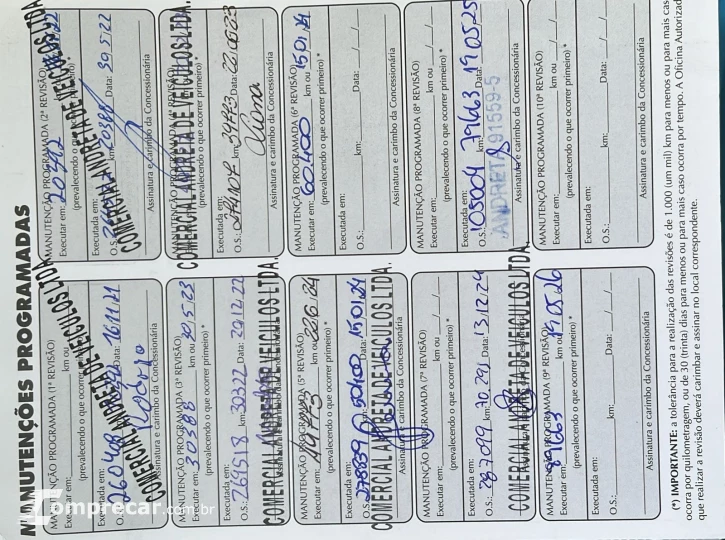 MANUTENÇÕES PROGRAMADAS
MANUTENÇÃO PROGRAMADA (1ª REVISÃO)
Executar em: km ou
(prevalecendo o que ocorrer primeiro) *
Executada em:
O.S.: 260408 Data: 16/11/21
COMERCIAL ANDRETA DE VEICULOS LTDA.
Assinatura e carimbo da Concessionária
MANUTENÇÃO PROGRAMADA (2ª REVISÃO)
Executar em: 20362
(prevalecendo o que ocorrer primeiro) *
Executada em:
O.S. km: 20388 Data: 30.5.22
COMERCIAL ANDRETA DE VEICULOS LTDA.
Assinatura e carimbo da Concessionária
MANUTENÇÃO PROGRAMADA (3ª REVISÃO)
Executar em: 30388 km ou 30/5/23
(prevalecendo o que ocorrer primeiro) *
Executada em:
O.S.: 261518 km: 30322 Data: 20.12.22
COMERCIAL ANDRETA DE VEICULOS LTDA.
COMERCIAL ANDRETA DE VEICULOS LTDA.
(prevalecendo o que ocorrer primeiro) *
Executada em:
O.S.: km: 39773 Data: 22.06.23
Assinatura e carimbo da Concessionária
MANUTENÇÃO PROGRAMADA (5ª REVISÃO)
Executar em: 49773 km ou 22.6.24
(prevalecendo o que ocorrer primeiro) *
Executada em:
O.S.: 50400 Data: 15.01.24
COMERCIAL ANDRETA DE VEICULOS LTDA.
Assinatura e carimbo da Concessionária
MANUTENÇÃO PROGRAMADA (6ª REVISÃO)
Executar em: 60.400 km ou 15.01.24
(prevalecendo o que ocorrer primeiro) *
Executada em:
O.S.: km: Data: / /
Assinatura e carimbo da Concessionária
MANUTENÇÃO PROGRAMADA (7ª REVISÃO)
Executar em: km ou / /
(prevalecendo o que ocorrer primeiro) *
Executada em:
O.S.: 287099 km: 70.291 Data: 13.12.24
COMERCIAL ANDRETA DE VEICULOS LTDA.
MANUTENÇÃO PROGRAMADA (8ª REVISÃO)
Executar em: km ou / /
(prevalecendo o que ocorrer primeiro) *
Executada em:
O.S.: 05004 79663 19.05.25
ANDRETA 91559-5
Assinatura e carimbo da Concessionária
MANUTENÇÃO PROGRAMADA (9ª REVISÃO)
Executar em: 89663 km ou 19.05.26
(prevalecendo o que ocorrer primeiro) *
Executada em:
O.S.: km: Data: / /
Assinatura e carimbo da Concessionária
MANUTENÇÃO PROGRAMADA (10ª REVISÃO)
Executar em: km ou / /
(prevalecendo o que ocorrer primeiro) *
Executada em:
O.S.: km: Data: / /
Assinatura e carimbo da Concessionária
(*) IMPORTANTE: a tolerância para a realização das revisões é de 1.000 (um mil) km para menos ou para mais cas
ocorra por quilometragem, ou de 30 (trinta) dias para menos ou para mais caso ocorra por tempo. A Oficina Autorizad
que realizar a revisão deverá carimbar e assinar no local correspondente.
Comprecar.com.br